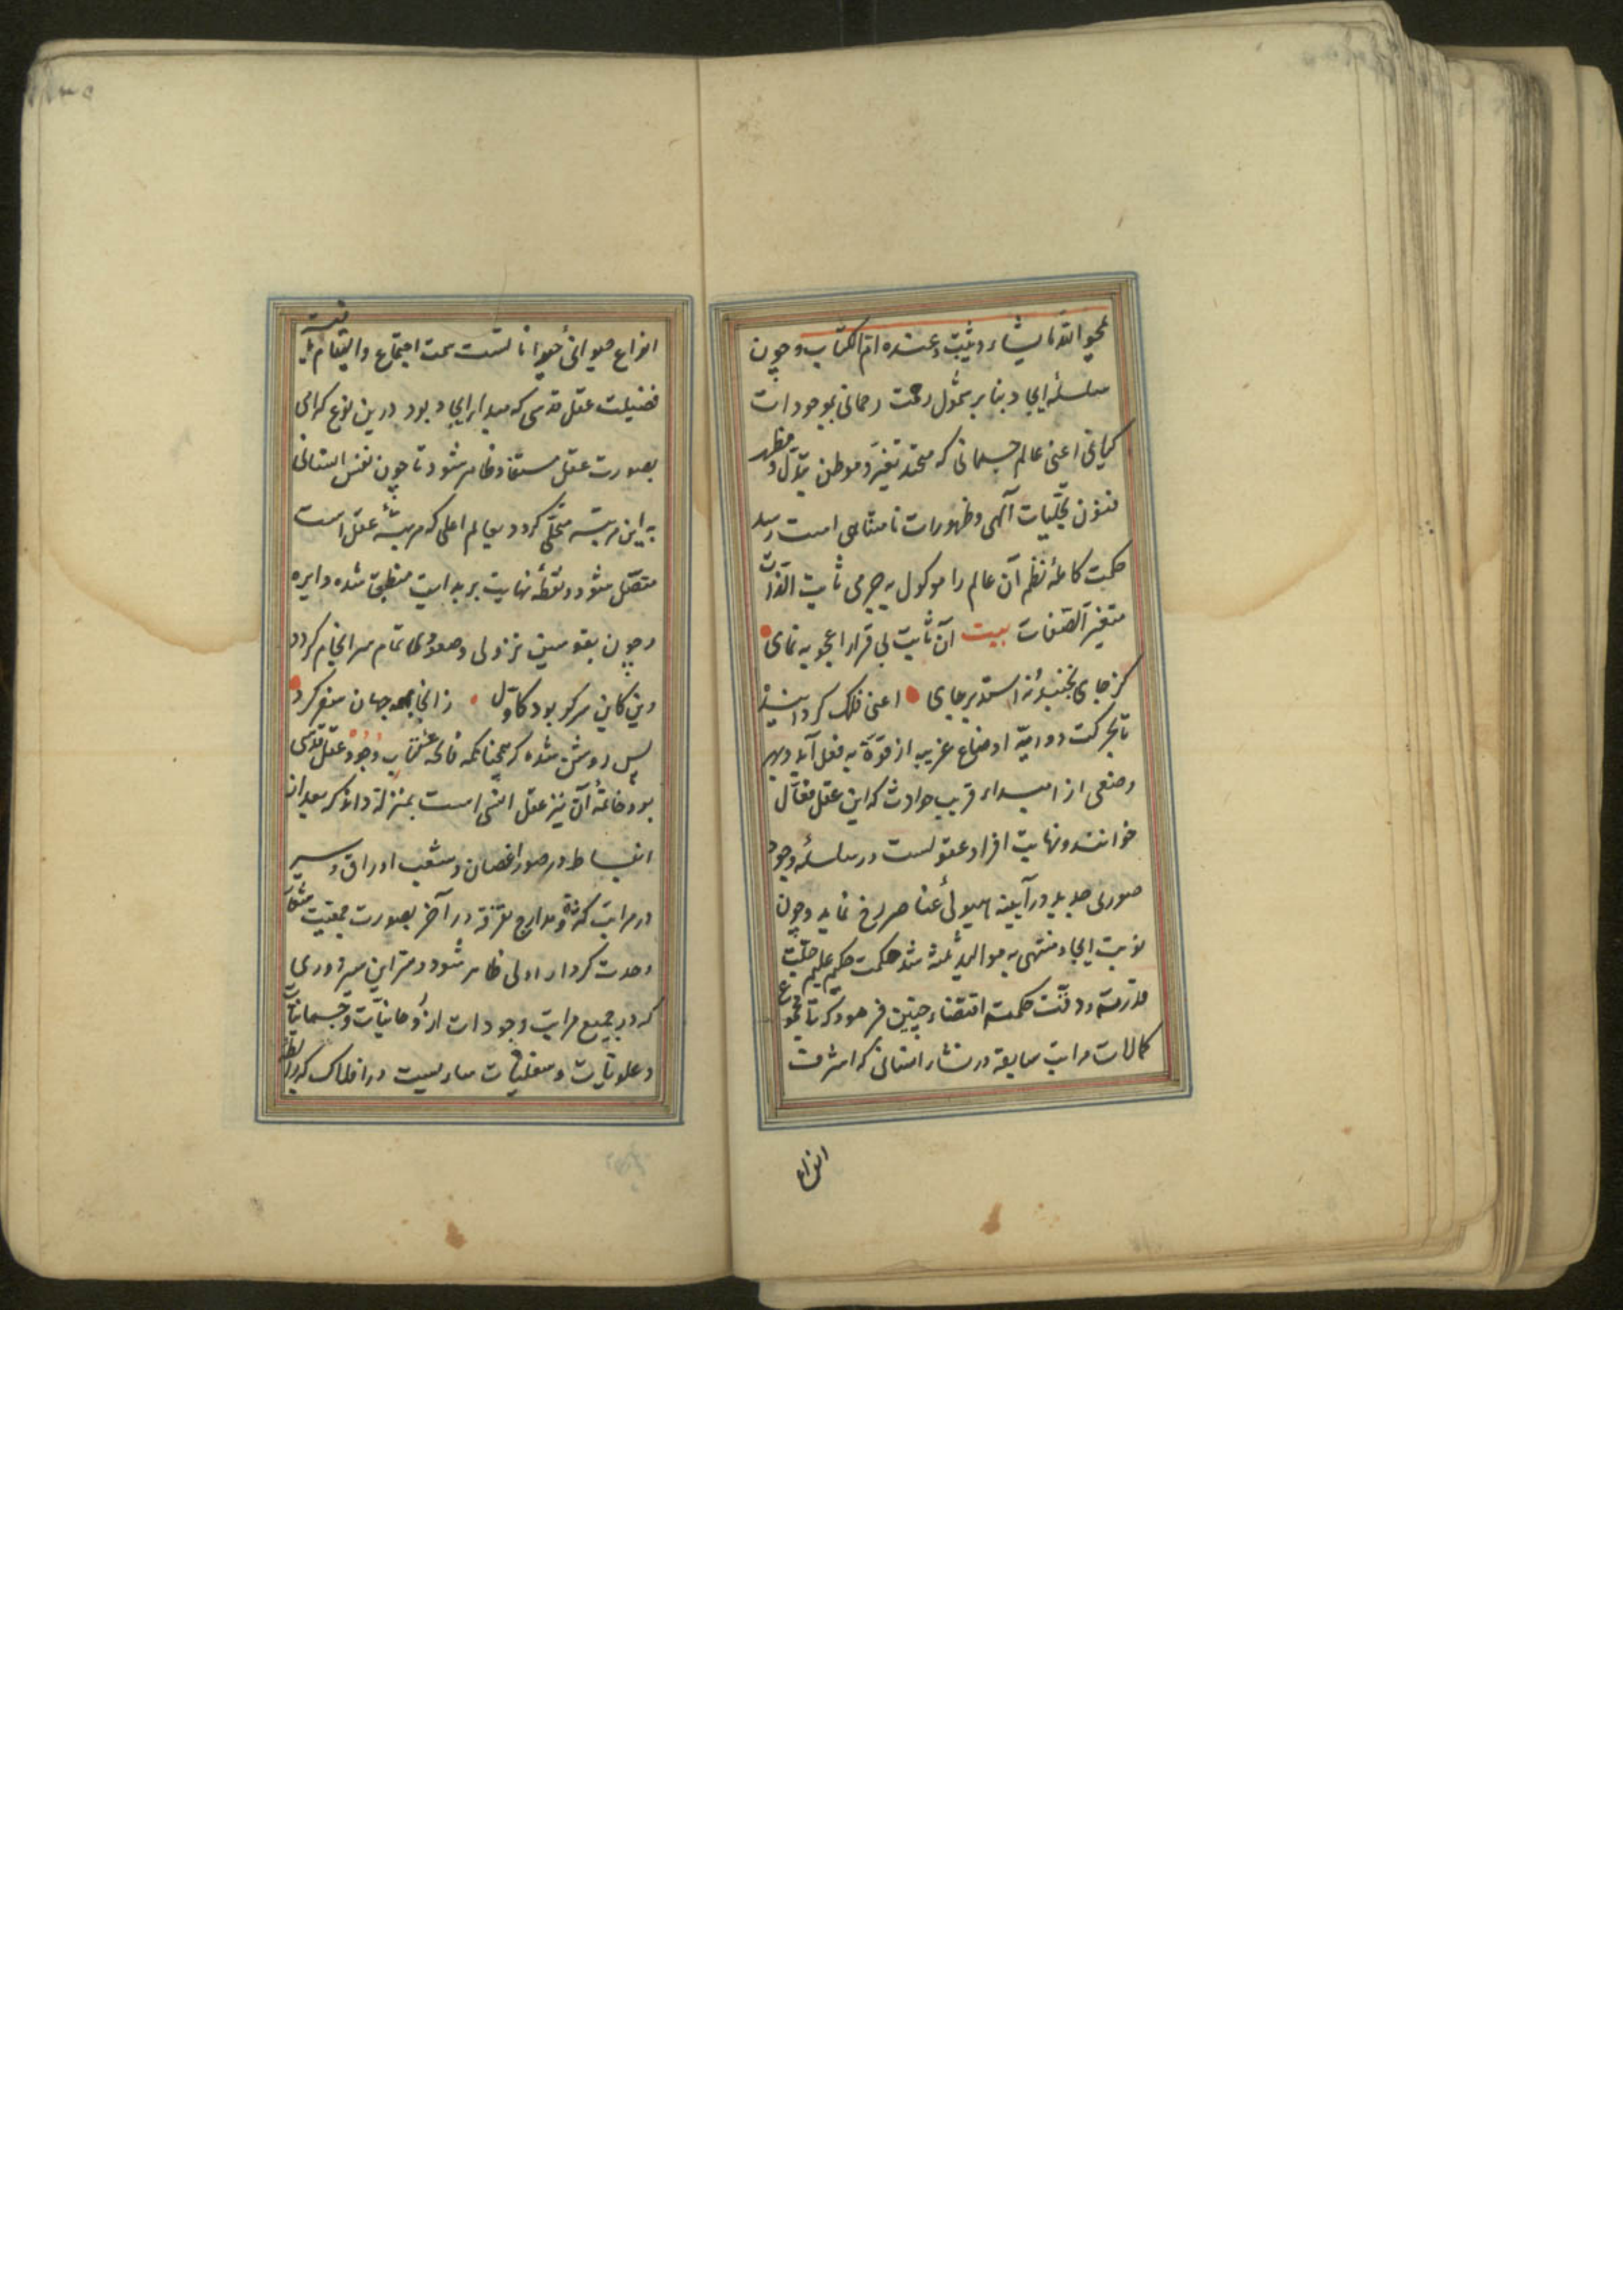 یمحو الله ما یشاء و یثبت و عنده ام الکتاب و چون
سلسلهٔ ایجاد بنا بر شمول رحمت رحمانی بموجودات
کیانی اعنی عالم جسمانی که محتد تغیر و موطن تبدل و مظهر
فنون تجلیات آلهی و ظهورات نامتناهی است رسید
حکمت کامله نظم آن عالم را موکول به جرمی ثابت الذات
متغیر الصفات بیت آن ثابت بی قرار اعجوبه نمای
کز جای نجنبد و نه استد بر جای اعنی فلک گردانید
تا بحرکت دوریه اوضاع غریبه از قوة به فعل آید و بهر
وضعی از مبداء قریب حوادث که این عقل فعال
خوانند و نهایت افراد عقولست در سلسلهٔ وجود
صوری جدید در آیینه هیولیٔ عناصر رخ نماید و چون
نوبت ایجاد منتهی به موالید ثلثه شد حکمت حکیم علیم جلت
قدرته و دقت حکمته اقتضاء چنین فرمود که تا مجموع
کمالات مراتب سابقه در نشاء انسانی که اشرف
انواع
انواع حیوانی حیوانا تست سمت اجتماع و التیام یافته
فضیلت عقل قدسی که مبداء ایجاد بود درین نوع گرامی
بصورت عقل مستفاد ظاهر شود تا چون نفس انسانی
به این مرتبه متحلی گردد بعالم اعلی که مرتبهٔ عقل است
متصل شود و نقطهٔ نهایت بر بدایت منطبق شده دایره
وجون بقوسین نزولی و صعودی تمام سرانجام گردد
وین کاین سر کو بود کاول زانجا بهمه جهان سفر کرد
پس روشن شده که همچنانکه فاتحه کتاب وجود عقل قدسی
بود خاتمهٔ آن نیز عقل انسی است بمنزلهٔ دانه که بعد از
انبساط در صور اغصان و شعب اوراق و سیر
در مراتب کثرة و مدارج تفرقه در آخر بصورت جمعیت
وحدت کردار اولی ظاهر شود و سر این سیر دوری
که در جمیع مراتب وجودات از روحانیات و جسمانیات
و علویات و سفلیات ساریست در افلاک که رابطه